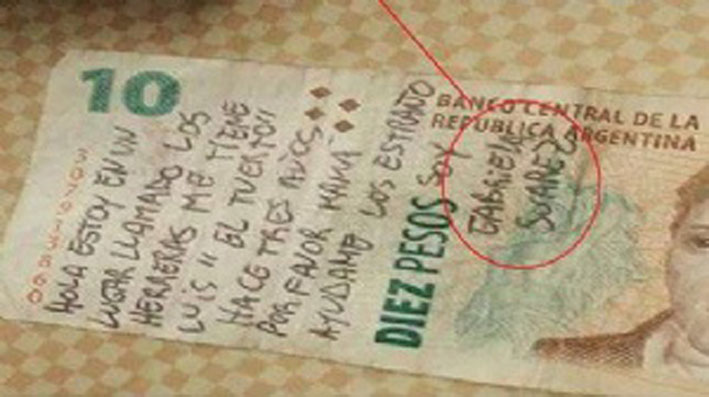 10
HOLA ESTOY EN UN
LUGAR LLAMADO LOS
HERRERAS ME TIENE
LUIS "EL TUERTO"
HACE TRES AÑOS
POR FAVOR MAMÁ
AYUDAME LOS ESTRAÑO
SOY
GABRIELA
SUAREZ
DIEZ PESOS
BANCO CENTRAL DE LA
REPUBLICA ARGENTINA